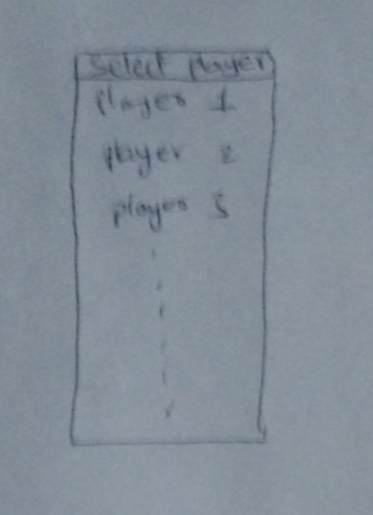 Select player
player 1
player 2
player 3